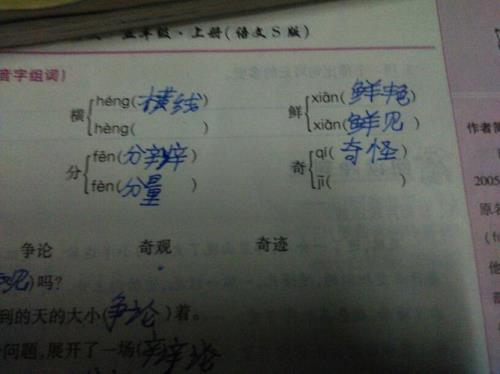 五年级·上册(语文S版)
音字组词)
横 héng(横线) hèng( )
鲜 xiān(鲜艳) xiǎn(鲜见)
分 fēn(分辨) fèn(分量)
奇 qí(奇怪) jī( )
争论 奇观 奇迹
)吗?
到的天的大小(争论)着。
问题,展开了一场(
作者简
2005
原名
他